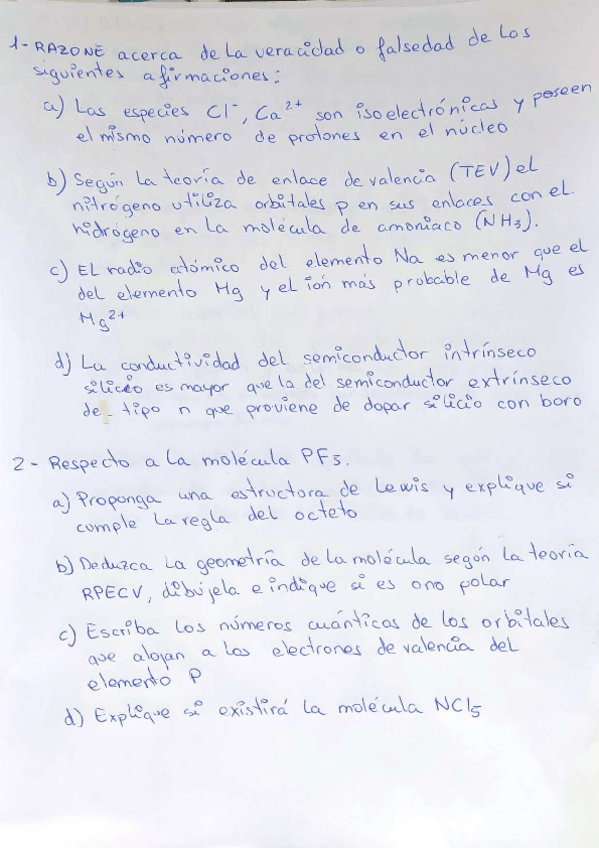 1- RAZONE acerca de la veracidad o falsedad de los
siguientes afirmaciones:
a) Las especies Cl⁻, Ca²⁺ son isoelectrónicas y poseen
el mismo número de protones en el núcleo
b) Según la teoría de enlace de valencia (TEV) el
nitrógeno utiliza orbitales p en sus enlaces con el
hidrógeno en la molécula de amoniaco (NH₃).
c) El radio atómico del elemento Na es menor que el
del elemento Mg y el ión más probable de Mg es
Mg²⁺
d) La conductividad del semiconductor intrínseco
silicio es mayor que la del semiconductor extrínseco
de tipo n que proviene de dopar silicio con boro
2- Respecto a la molécula PF₅.
a) Proponga una estructora de Lewis y explique si
cumple la regla del octeto
b) Deduzca la geometría de la molécula según la teoría
RPECV, dibújela e indique si es o no polar
c) Escriba los números cuánticas de los orbitales
que alojan a los electrones de valencia del
elemento P
d) Explique si existirá la molécula NCl₅